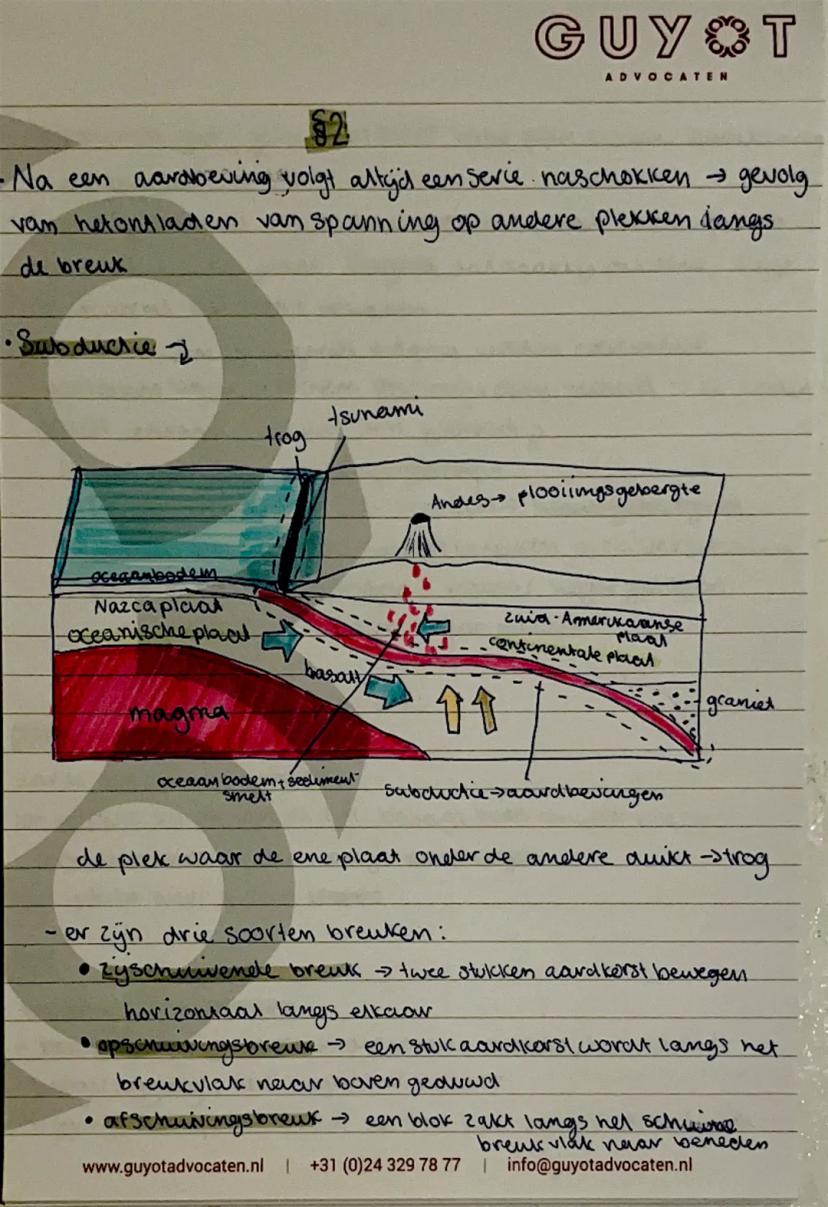 GUYOT
ADVOCATEN
§2
- Na een aardbeving volgt altijd een serie naschokken → gevolg
van het ontladen van spanning op andere plekken langs
de breuk
• Subductie
tsunami
trog
Andes → plooiingsgebergte
oceaanbodem
Nazcaplaat
oceanische plaat
Zuid-Amerikaanse
plaat
continentale plaat
basalt
graniet
magma
oceaanbodem + sediment
smelt
subductie → aardbevingen
de plek waar de ene plaat onder de andere duikt → trog
- er zijn drie soorten breuken:
• zijschuivende breuk → twee stukken aardkorst bewegen
horizontaal langs elkaar
• opschuivingsbreuk → een stuk aardkorst wordt langs het
breukvlak naar boven geduwd
• afschuivingsbreuk → een blok zakt langs het schuine
breukvlak naar beneden
www.guyotadvocaten.nl | +31 (0)24 329 78 77 | info@guyotadvocaten.nl